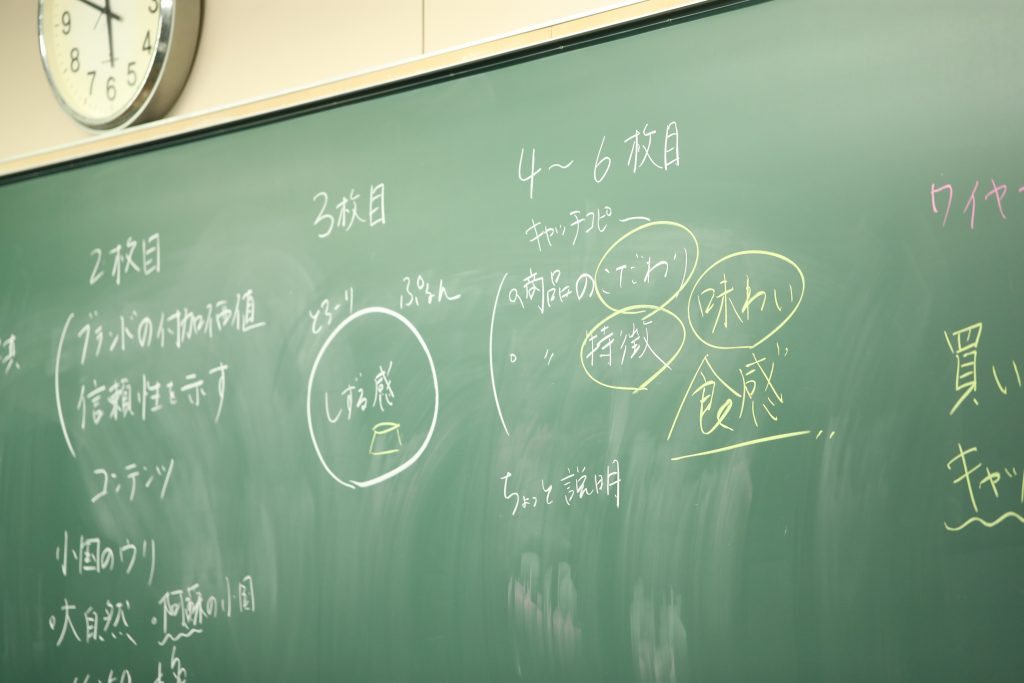 9 8 7 6 5 4 3
2枚目
ブランドの付加価値
信頼性を示す
コンテンツ
小国のウリ
・大自然 ・阿蘇の小国
3枚目
とろーり ぷるん
しずる感
4〜6枚目
キャッチコピー
。商品のこだわり
。〃 特徴
味わい
食感
ちょっと説明
ワイヤ
買い
キャッ